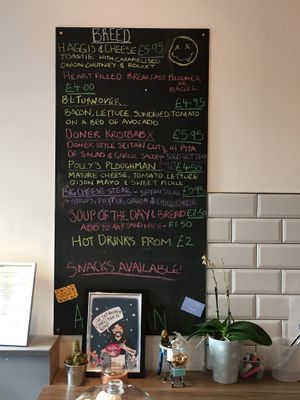 BREED
HAGGIS & CHEESE £5.95
TOASTIE WITH CARAMELISED
ONION CHUTNEY & ROCKET
HEART FILLED BREAKFAST BLOOMER
OR BAGEL
£4.00
B.L. TURNOVER £4.95
BACON, LETTUCE, SUNDRIED TOMATO
ON A BED OF AVOCADO
DONER KRISTBAB X £5.95
DONER STYLE SEITAN CUTS IN PITA
OF SALAD & GARLIC SAUCE
POLLY'S PLOUGHMAN £4.55
MATURE CHEESE, TOMATO, LETTUCE
DIJON MAYO & SWEET PICKLE
BIG CHEESE STEAK - SEITAN STEAK £5.95
STRIPS, PEPPER, ONION & CHEESE
SOUP OF THE DAY & BREAD £2.50
ADD TO ANY SANDWICH - £1.50
HOT DRINKS FROM £2
SNACKS AVAILABLE!